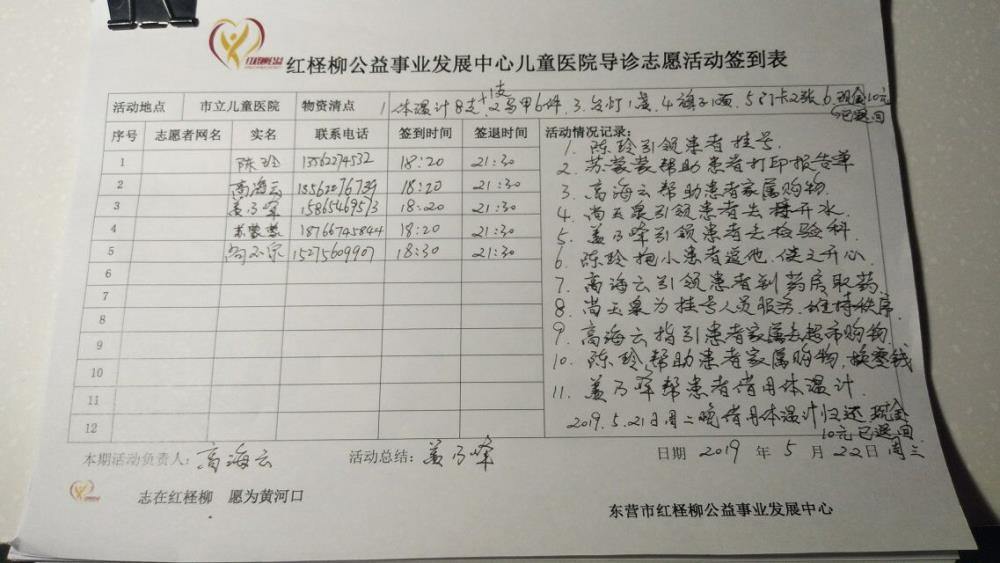 红柽柳公益事业发展中心儿童医院导诊志愿活动签到表
活动地点 市立儿童医院 物资清点 1.体温计8支+1支 2马甲6件.3.灯1 4旗子1面.5门卡2张.6.现金10元已退回
序号 志愿者网名 实名 联系电话 签到时间 签退时间 活动情况记录:
1 陈玲 13562274532 18:20 21:30
2 高海云 18562076739 18:20 21:30
3 盖乃峰 15865469573 18:20 21:30
4 苏蒙蒙 18766745844 18:20 21:30
5 尚玉泉 15275609907 18:30 21:30
6
7
8
9
10
11
12
1. 陈玲引领患者挂号.
2. 苏蒙蒙帮助患者打印报告单
3. 高海云帮助患者家属购物.
4. 尚玉泉引领患者去接开水.
5. 盖乃峰引领患者去检验科.
6. 陈玲抱小患者逗他.使之开心.
7. 高海云引领患者到药房取药.
8. 尚玉泉为挂号人员服务.维持秩序.
9. 高海云指引患者家属去超市购物.
10. 陈玲帮助患者家属购物,换零钱
11. 盖乃峰帮患者借用体温计.
2019.5.21日周二晚借用体温计归还,现金
10元已退回.
本期活动负责人: 高海云 活动总结: 盖乃峰 日期 2019 年 5 月 22日 周三
志在红柽柳 愿为黄河口
东营市红柽柳公益事业发展中心